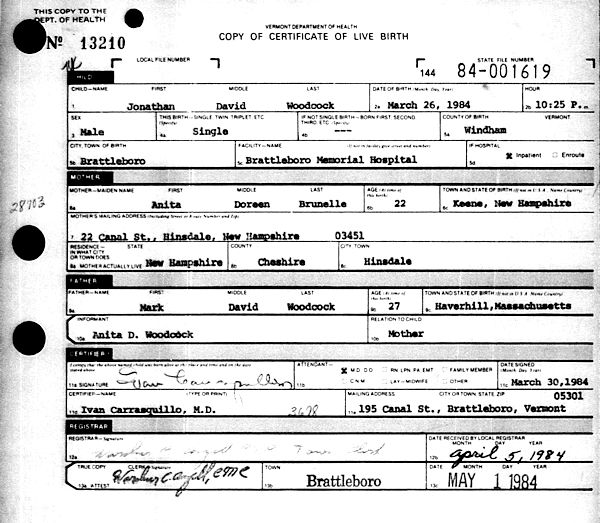 THIS COPY TO THE
DEPT. OF HEALTH
VERMONT DEPARTMENT OF HEALTH
COPY OF CERTIFICATE OF LIVE BIRTH
No 13210
LOCAL FILE NUMBER
STATE FILE NUMBER
144 84-001619
CHILD
CHILD—NAME FIRST MIDDLE LAST DATE OF BIRTH (Month, Day, Year) HOUR
1. Jonathan David Woodcock 2a March 26, 1984 2b 10:25 P.m
SEX THIS BIRTH—SINGLE, TWIN, TRIPLET, ETC. (Specify) IF NOT SINGLE BIRTH—BORN FIRST, SECOND, THIRD, ETC. (Specify) COUNTY OF BIRTH VERMONT
3 Male 4a Single 4b --- 5a Windham
CITY, TOWN OF BIRTH FACILITY—NAME (If not in facility give street and number) IF HOSPITAL
5b Brattleboro 5c Brattleboro Memorial Hospital 5d X Inpatient Enroute
MOTHER
MOTHER—MAIDEN NAME FIRST MIDDLE LAST AGE (At time of this birth) TOWN AND STATE OF BIRTH (If not in U.S.A. Name Country)
6a Anita Doreen Brunelle 6b 22 6c Keene, New Hampshire
28703
MOTHER'S MAILING ADDRESS (Including Street or Route Number and Zip)
7 22 Canal St., Hinsdale, New Hampshire 03451
RESIDENCE— IN WHAT CITY OR TOWN DOES STATE COUNTY CITY TOWN
8a MOTHER ACTUALLY LIVE New Hampshire 8b Cheshire 8c Hinsdale
FATHER
FATHER—NAME FIRST MIDDLE LAST AGE (At time of this birth) TOWN AND STATE OF BIRTH (If not in U.S.A. Name Country)
9a Mark David Woodcock 9b 27 9c Haverhill,Massachusetts
INFORMANT RELATION TO CHILD
10a Anita D. Woodcock 10b Mother
CERTIFIER
I certify that the above named child was born alive at the place and time and on the date stated above ATTENDANT— X M.D. DO RN, LPN, PA, EMT FAMILY MEMBER DATE SIGNED (Month, Day, Year)
11a SIGNATURE Ivan Carrasquillo 11b C.N.M. LAY—MIDWIFE OTHER 11c March 30,1984
CERTIFIER—NAME (TYPE OR PRINT) MAILING ADDRESS CITY OR TOWN STATE ZIP 05301
11d Ivan Carrasquillo, M.D. 3678 11e 195 Canal St., Brattleboro, Vermont
REGISTRAR
REGISTRAR—Signature DATE RECEIVED BY LOCAL REGISTRAR
MONTH DAY YEAR
12a 12b April 5, 1984
TRUE COPY CLERK—Signature TOWN DATE MONTH DAY YEAR
13a ATTEST 13b Brattleboro 13c MAY 1 1984